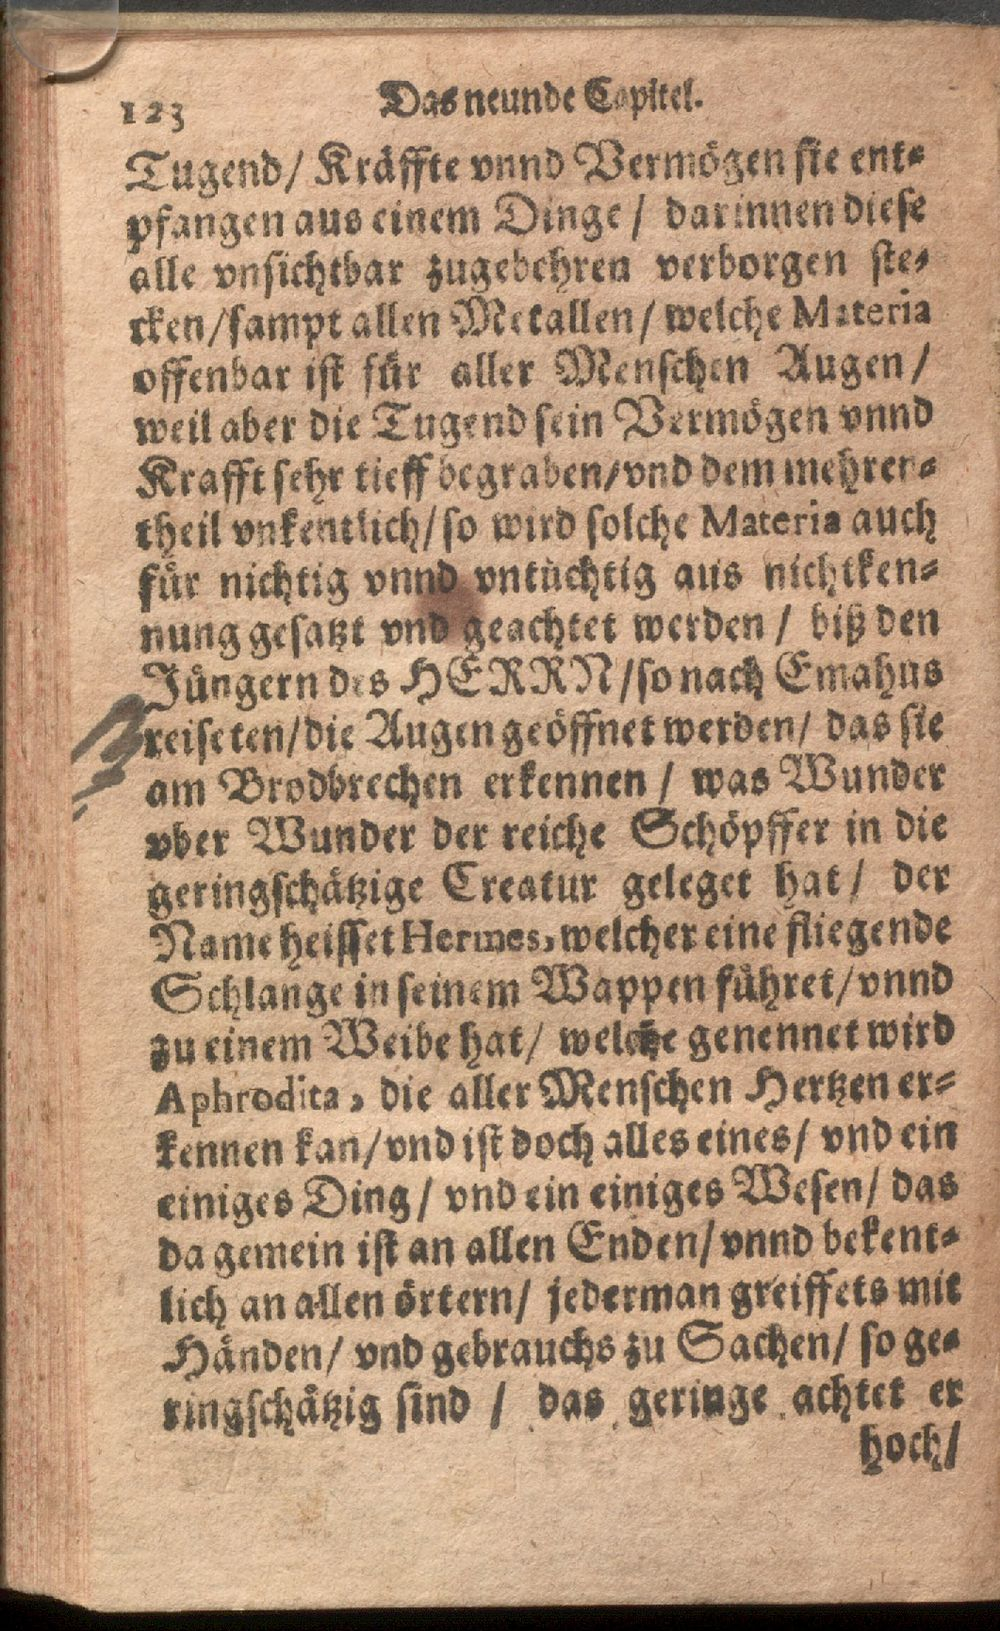 123 Das neunde Capitel.
Tugend/ Kräffte vnnd Vermögen sie ent-
pfangen aus einem Dinge/ darinnen diese
alle vnsichtbar zugebehren verborgen ste-
cken/sampt allen Metallen/ welche Materia
offenbar ist für aller Menschen Augen/
weil aber die Tugend sein Vermögen vnnd
Krafft sehr tieff begraben/vnd dem mehren-
theil vnkentlich/ so wird solche Materia auch
für nichtig vnnd vntüchtig aus nichtken-
nung gesatzt vnd geachtet werden/ biß den
Jüngern des HERRN/so nach Emahus
reiseten/die Augen geöffnet werden/ das sie
am Brodbrechen erkennen/ was Wunder
vber Wunder der reiche Schöpffer in die
geringschätzige Creatur geleget hat/ der
Name heisset Hermes, welcher eine fliegende
Schlange in seinem Wappen führet/ vnnd
zu einem Weibe hat/ welche genennet wird
Aphrodita, die aller Menschen Hertzen er-
kennen kan/vnd ist doch alles eines/ vnd ein
einiges Ding/ vnd ein einiges Wesen/ das
da gemein ist an allen Enden/ vnnd bekent-
lich an allen örtern/ jederman greiffets mit
Händen/ vnd gebrauchs zu Sachen/ so ge-
ringschätzig sind/ das geringe achtet er
hoch/